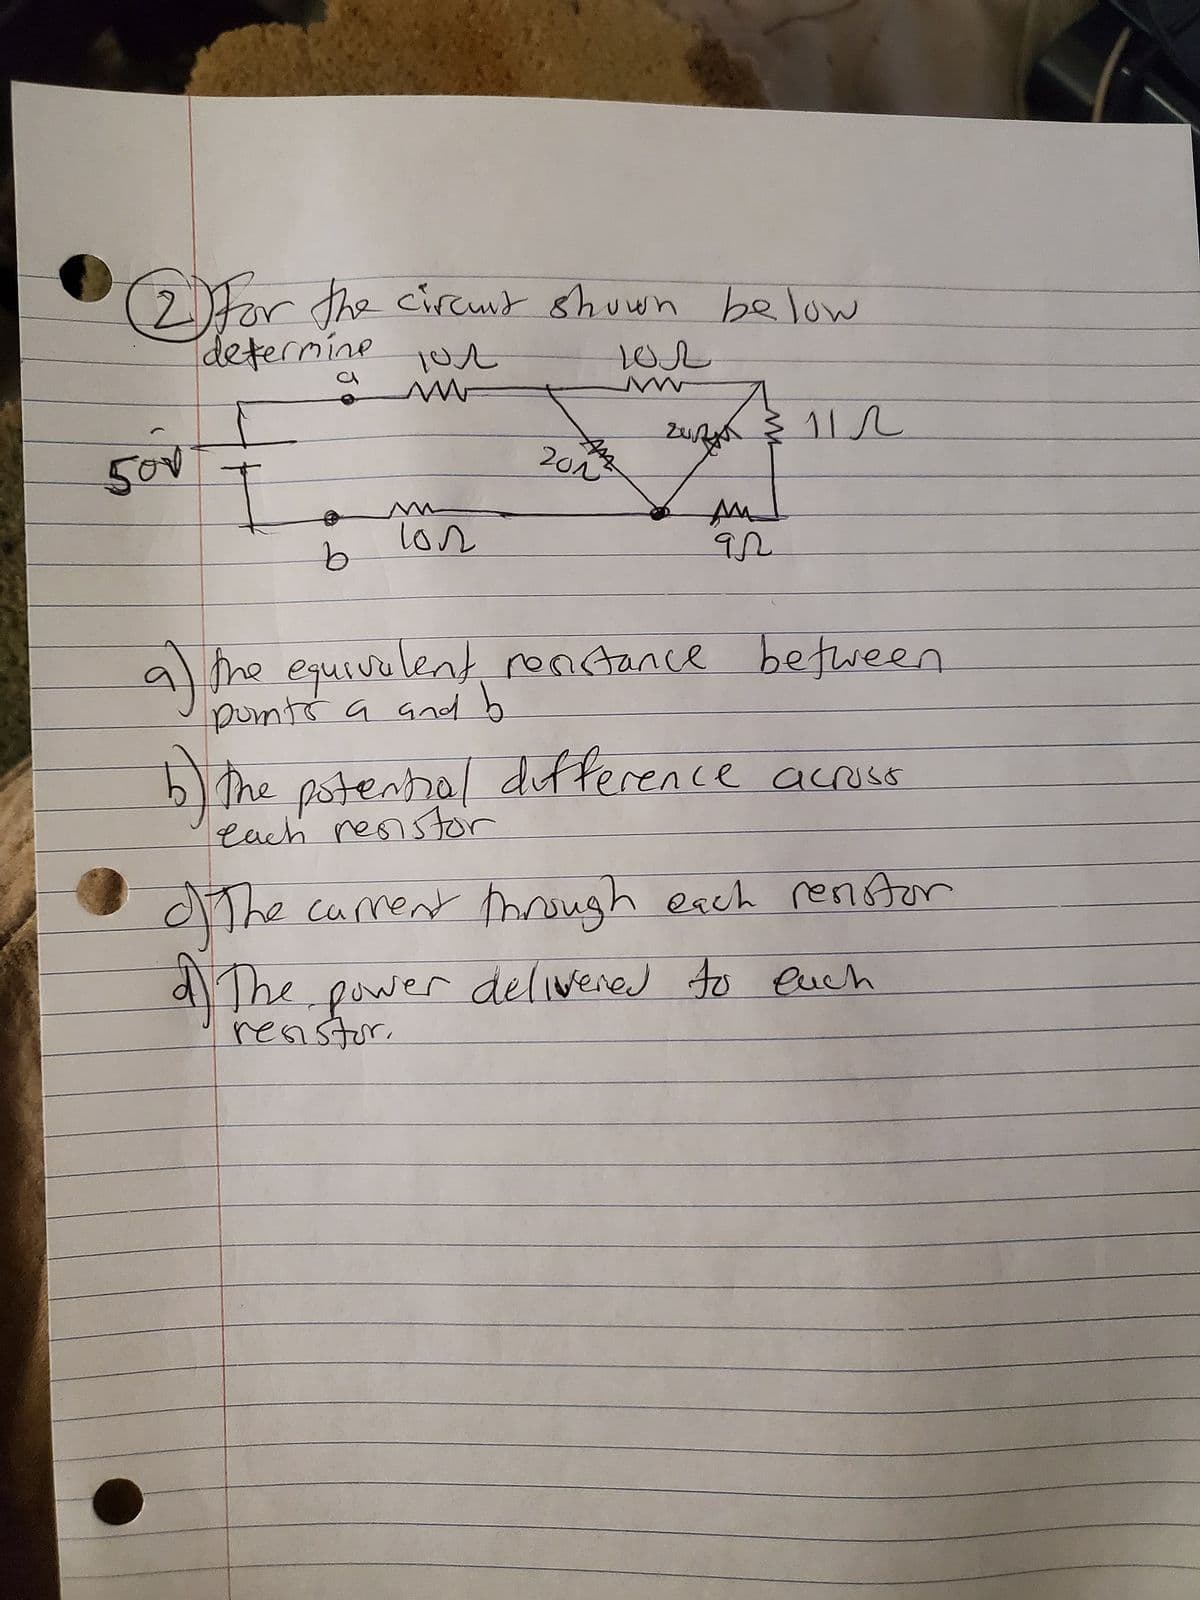 2) For the circuit shown below
determine
10Ω 10Ω
a
11Ω
50V
20Ω
b 10Ω 9Ω
a) the equivalent resistance between
points a and b
b) the potential difference across
each resistor
c) The current through each resistor
d) The power delivered to each
resistor.